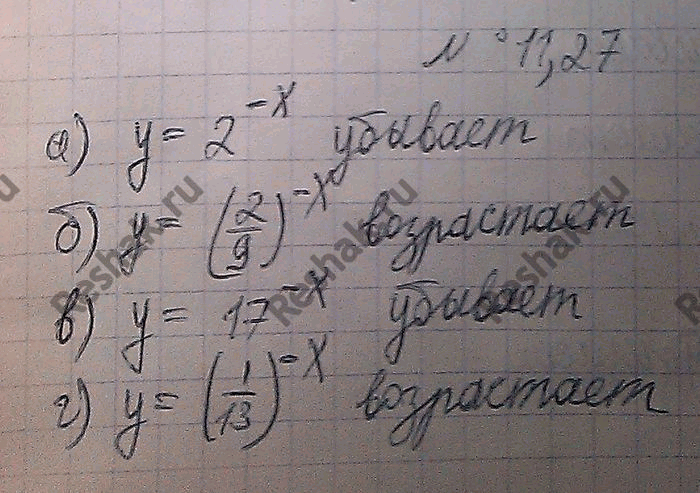 № 11,27
а) y = 2^{-x} убывает
б) y = (2/9)^{-x} возрастает
в) y = 17^{-x} убывает
г) y = (1/13)^{-x} возрастает
Reshak.ru
Reshak.ru
Reshak.ru